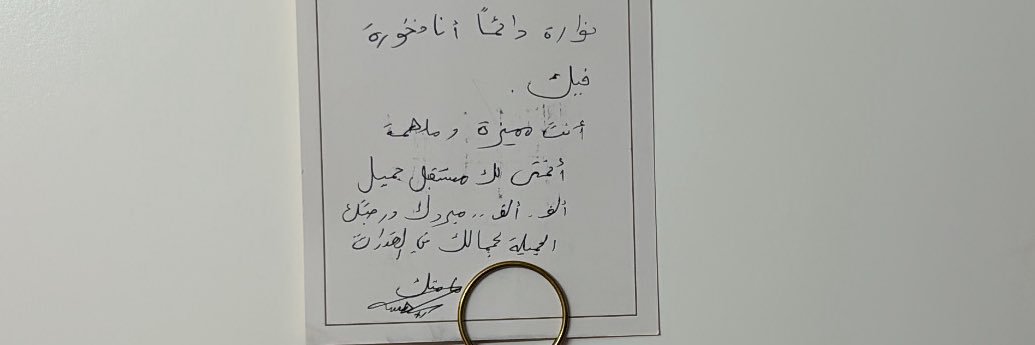 نوارة دائمًا أنا فخورة
فيك .
أنت مميزة و ملهمة
أتمنى لك مستقبل جميل
ألف .. ألف .. مبروك
الجميلة لجمالك في